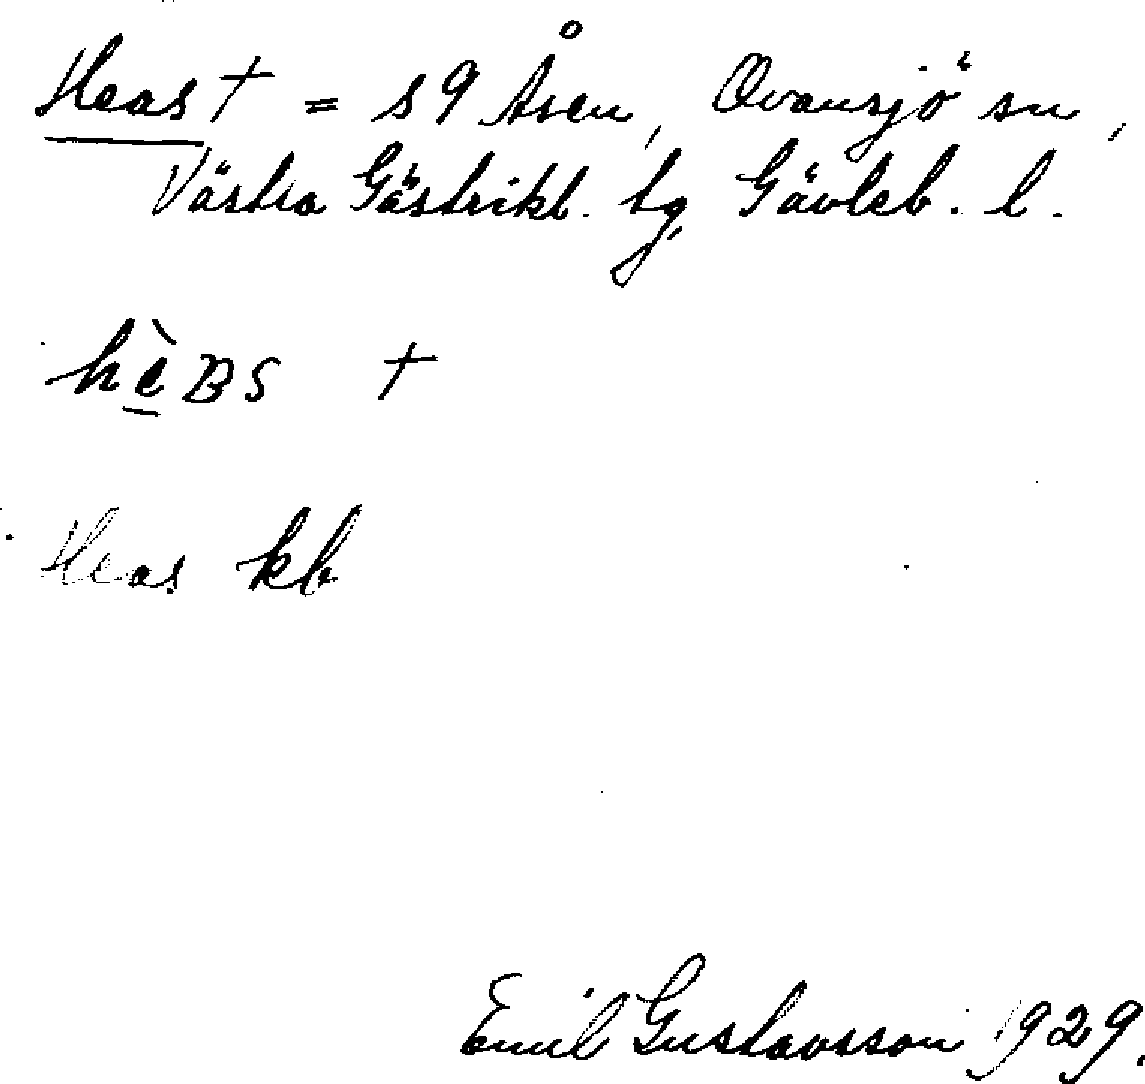 Heas † = s 9 Åsen, Ovansjö sn,
Västra Gästrikl. tg, Gävleb. l.
hè̱BS †
Heas kb
Emil Gustavsson 1929.